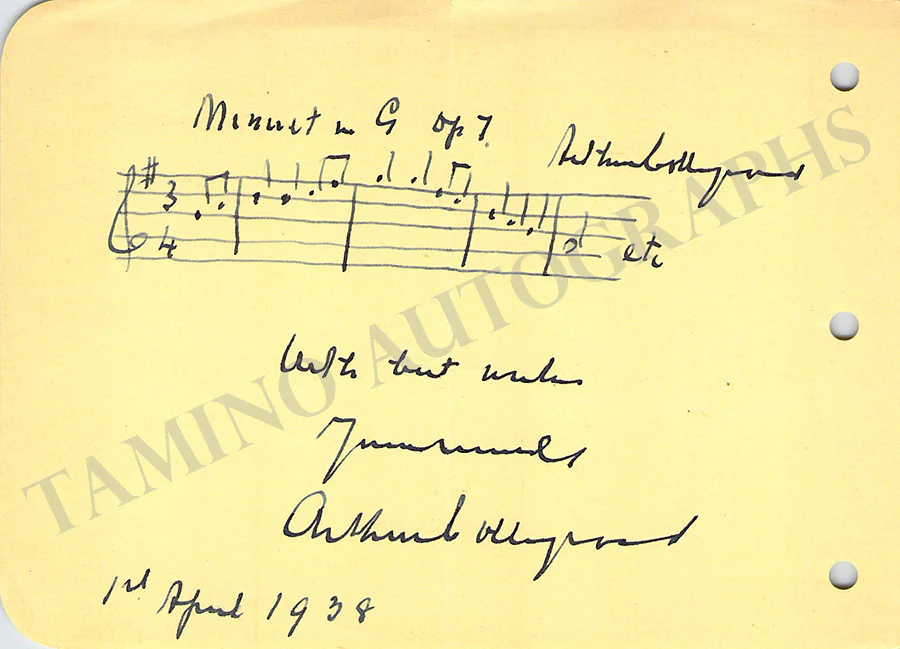 Minuet in G Op 7.
Arthur Collingwood
3
4
etc
With best wishes
Yours sincerely
Arthur Collingwood
1st April 1938
TAMINO AUTOGRAPHS